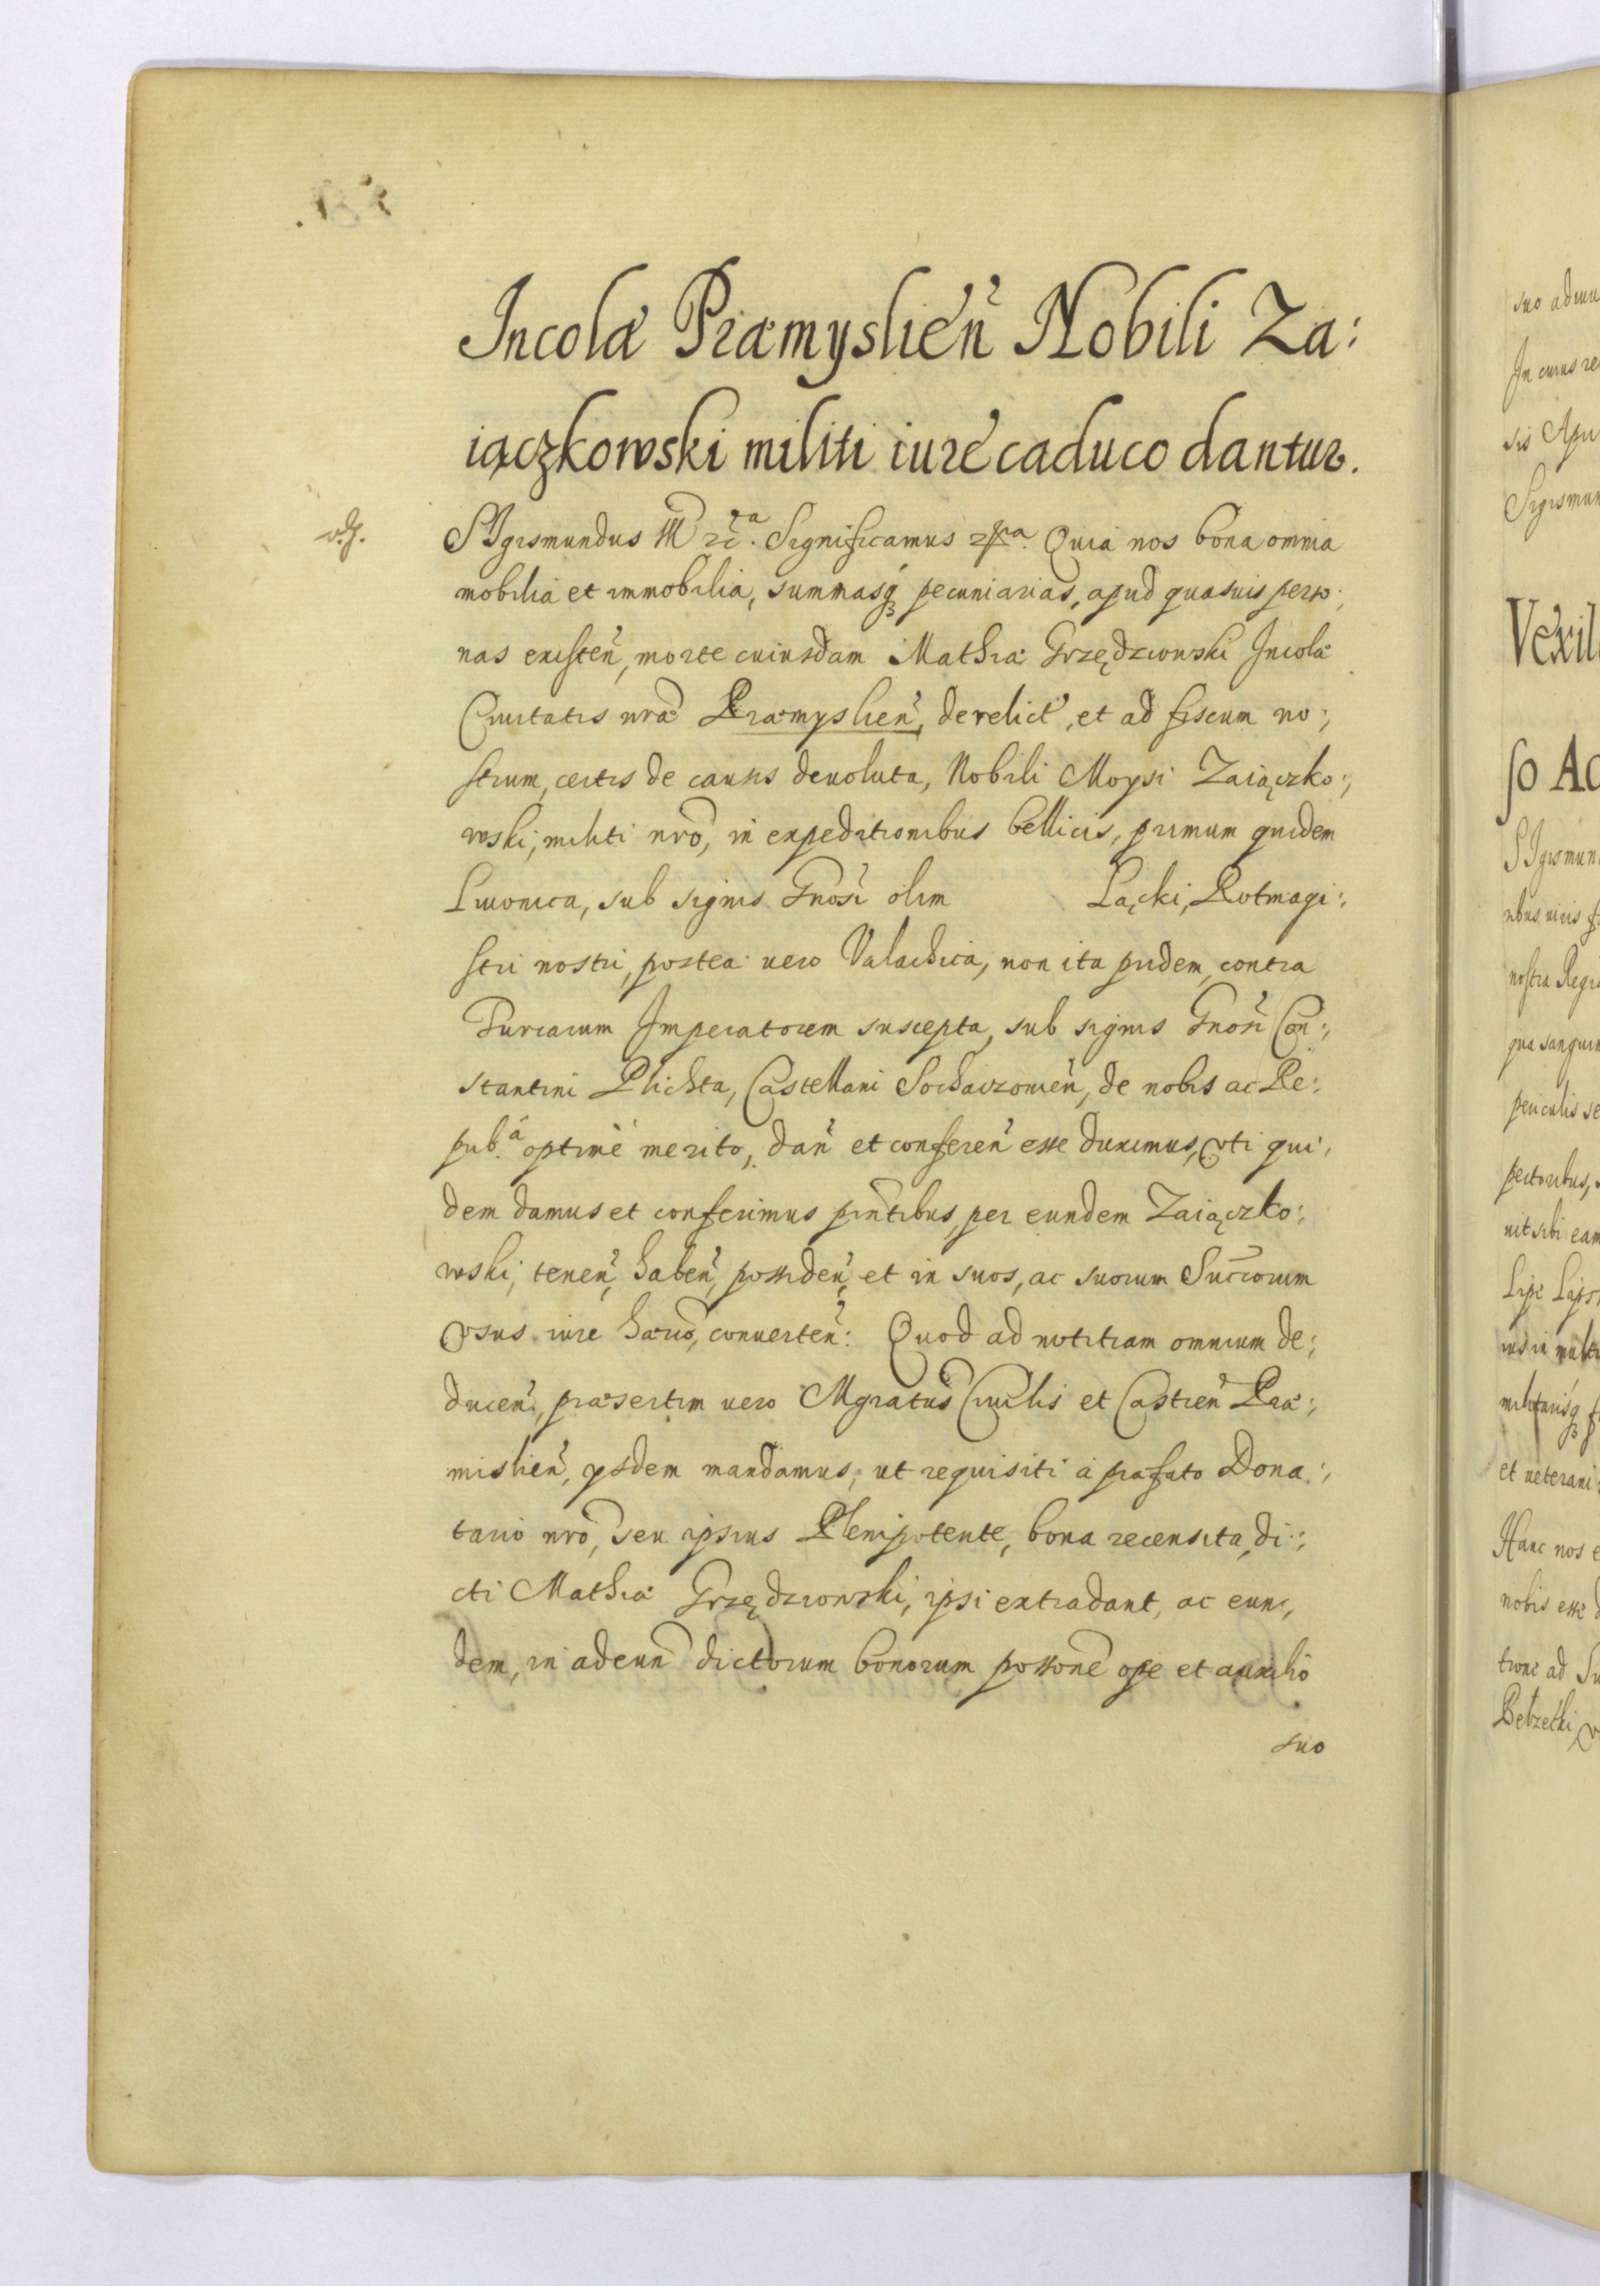 Incolæ Præmyslien̄ Nobili Za:
iączkowski militi iure caduco dantur.
SIgismundus III etc̄a. Significamus etc̄a. Quia nos bona omnia
mobilia et immobilia, summasq3 pecuniarias, apud quasuis perso:,
nas existen̄, morte cuiusdam Mathiæ Grzędziowski Incolæ
Ciuitatis nr̄æ Præmyslien̄, derelict, et ad fiscum no:,
strum, certis de causis deuoluta, Nobili Moysi Zaiączko:,
wski, militi nr̄o, in expeditionibus bellicis, primum quidem
Liuonica, sub signis Gn̄osi olim Łącki, Rotmagi:,
stri nostri, postea vero Valachica, non ita pridem, contra
Turcarum Imperatorem suscepta, sub signis Gn̄osi Con:,
stantini Plichta, Castellani Sochaczouien̄, de nobis ac Re:,
pub.a optime merito, dan̄ et conferen̄ esse duximus, vti qui:,
dem damus et conferimus pn̄tibus, per eundem Zaiączko:,
wski, tenen̄, haben̄, possiden̄, et in suos, ac suorum Succ̄orum
vsus iure hær̄io, conuerten̄: Quod ad notitiam omnium de:,
ducen̄, præsertim vero Mgratus Ciuilis et Castren̄ Præ:,
mislien̄, ysdem mandamus, ut requisiti a præfato Dona:,
tario nr̄o, seu ipsius Plenipotente, bona recensita, di:,
cti Mathiæ Grzędziowski, ipsi extradant, ac eun:,
dem, in adeun̄ dictorum bonorum poss̄one ope et auxilio
suo
suo
In cuius
sis
Sigismun
Vexil
so Ac
SIgismun
nostra Regia
periculis
pectoribus,
nit sibi eam
et veterani
Hanc nos
nobis esse
tione ad
Bełzecki